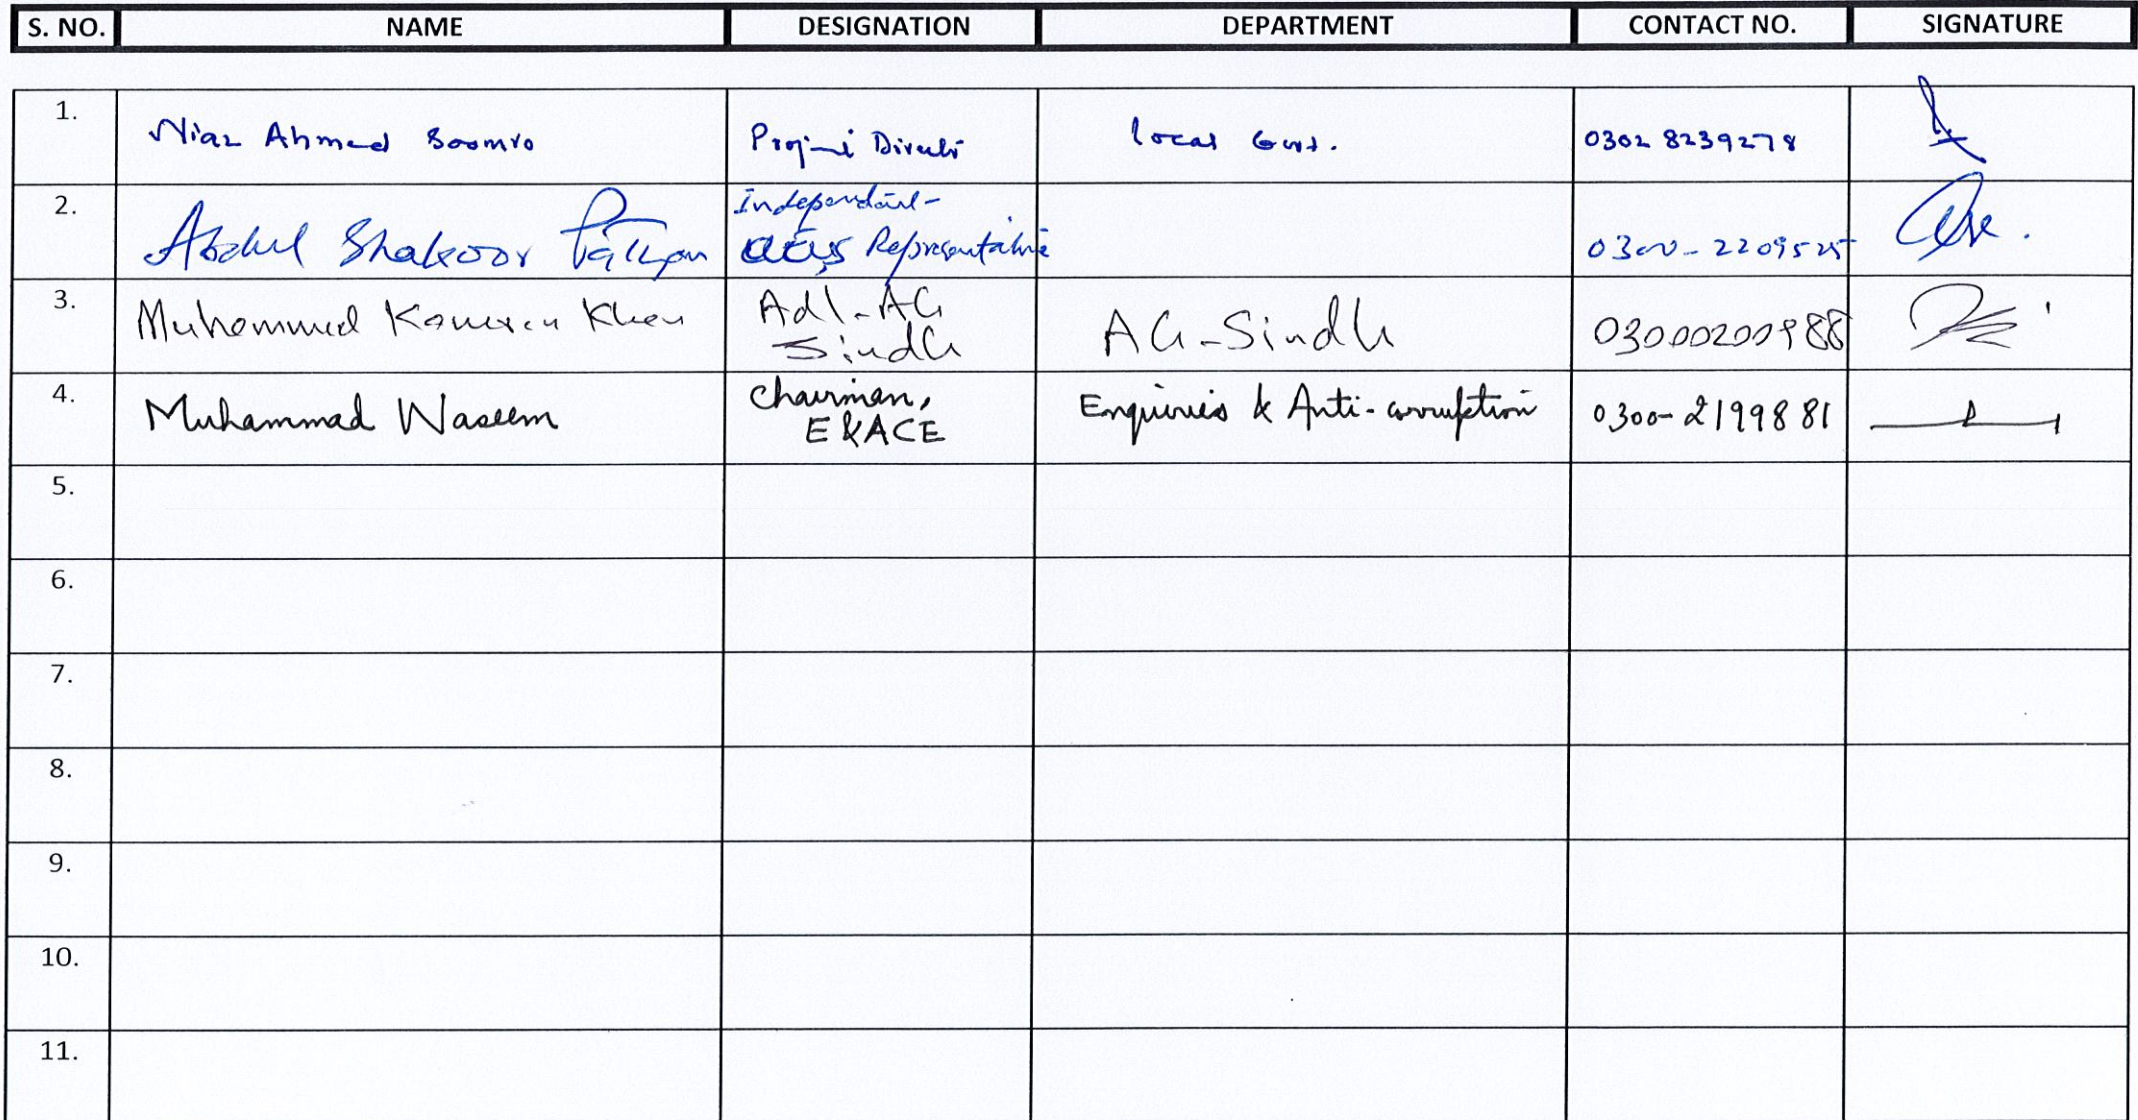 S. NO. NAME DESIGNATION DEPARTMENT CONTACT NO. SIGNATURE
1. Niaz Ahmed Soomro Project Director Local Govt. 0302 8239278
2. Abdul Shakoor Independent
Representative 0300-220952
3. Muhammad Kamran Khan Adl-AG
Sindh AG-Sindh 03000200988
4. Muhammad Waseem Chairman,
E&ACE Enquiries & Anti-corruption 0300-2199881
5.
6.
7.
8.
9.
10.
11.